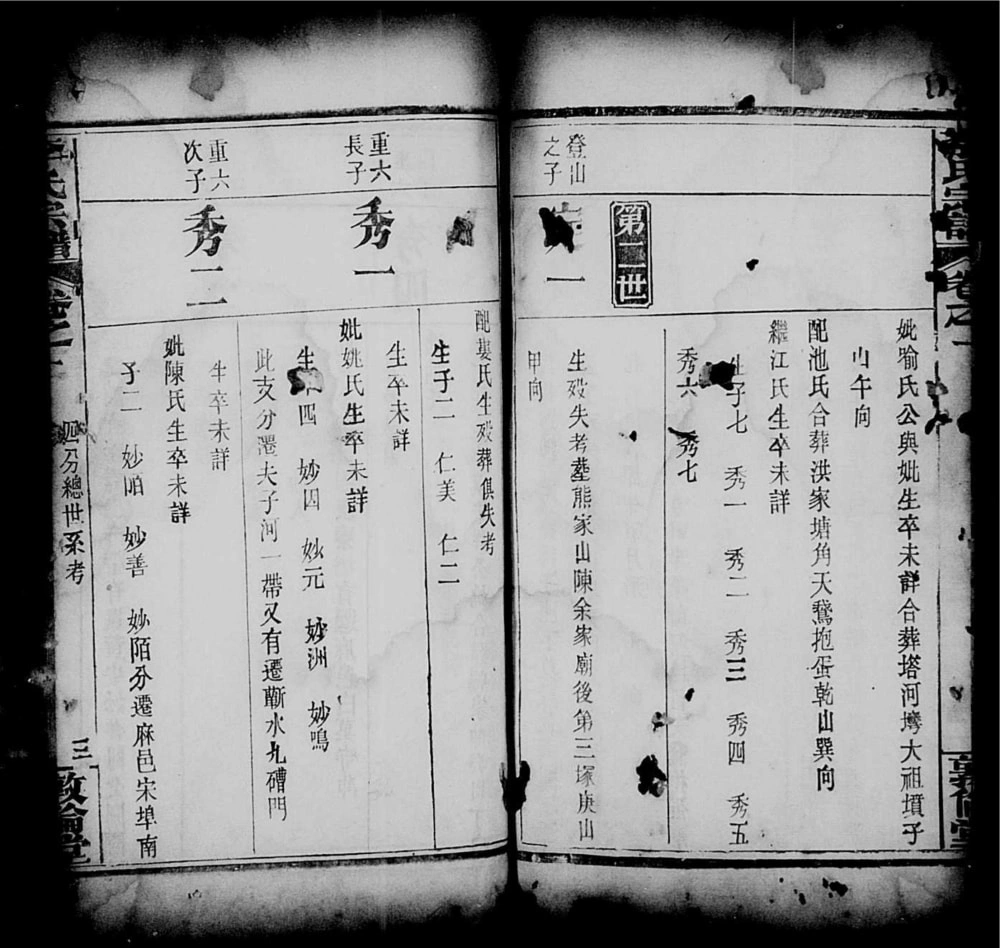 妣喻氏公與妣生卒未詳合葬塔河塆大祖墳子
山午向
配池氏合葬洪家塘角天鵞抱蛋乾山巽向
繼江氏生卒未詳
生子七 秀一 秀二 秀三 秀四 秀五
秀六 秀七
第二世
登山
之子
一
生殁失考塟熊家山陳余家廟後第三塚庚山
甲向
配婁氏生殁葬俱失考
生子二 仁美 仁二
重六
長子
秀一
生卒未詳
妣姚氏生卒未詳
生 四 妙四 妙元 妙洲 妙鳴
此支分遷夫子河一帶又有遷蘄水九磄門
重六
次子
秀二
生卒未詳
妣陳氏生卒未詳
子二 妙陌 妙善 妙陌分遷麻邑宋埠南
氏宗譜 卷之一 分總世系考 三 敦倫堂